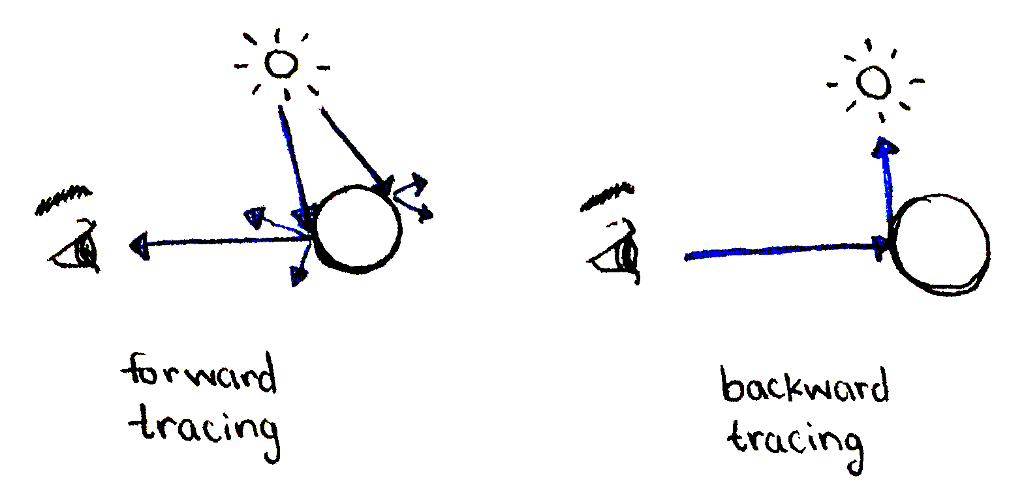 forward
tracing
backward
tracing